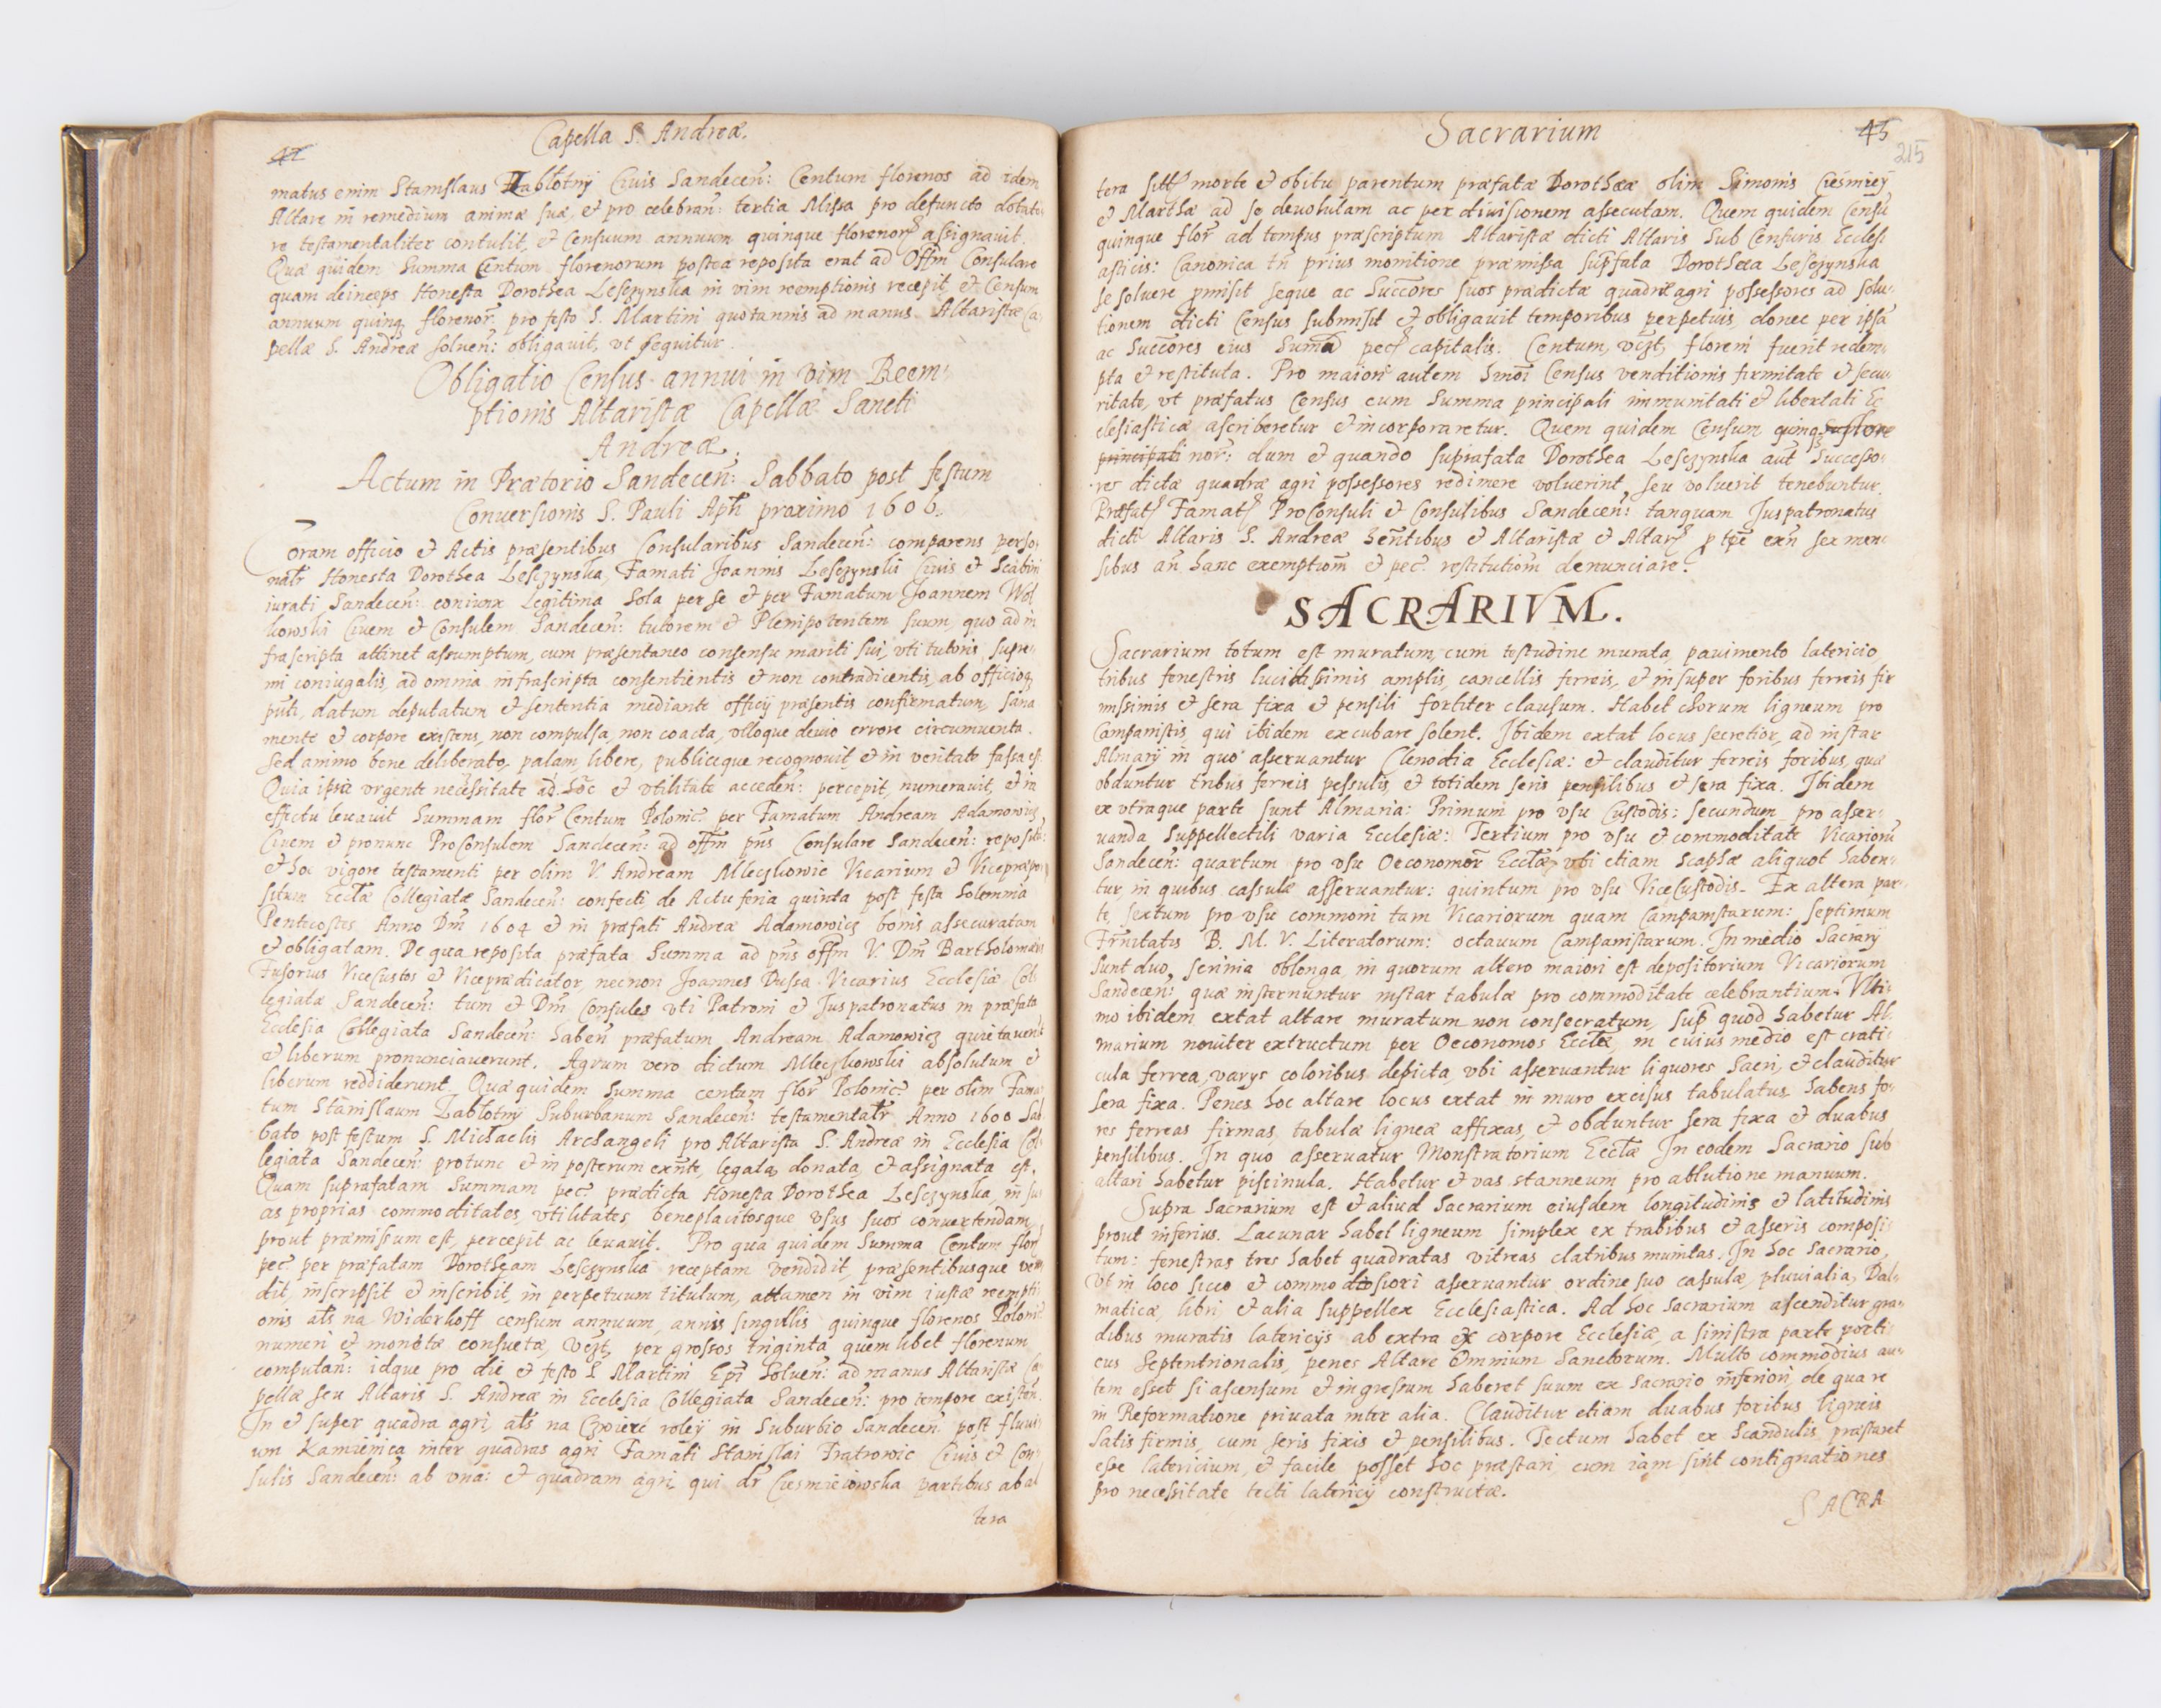 Capella S. Andreæ.
matus enim Stanislaus Zabłotny Ciuis Sandecen̄: Centum florenos ad idem
Altare in remedium animæ suæ, et pro celebran̄: tertia Missa pro defuncto
re testamentaliter contulit, et Censuum annuum quinque florenor̄ assignauit.
Quæ quidem Summa Centum florenorum postea reposita erat ad Off̄m Consulare
quam deinceps Honesta Dorothea Lesczynska in vim reemptionis recepit, et Censum
annuum quinq̨ florenor̄ pro festo S. Martini quotannis ad manus Altaristæ Ca
pellæ S. Andreæ soluen̄: obligauit, vt sequitur.
Obligatio Census annui in vim Reem-
ptionis Altaristæ Capellæ Sancti
Andreæ.
Actum in Prætorio Sandecen̄: Sabbato post festum
Conuersionis S. Pauli Ap̄li proximo 1606.
Coram officio et Actis præsentibus Consularibus Sandecen̄: comparens perso-
nalr̄ Honesta Dorothea Lesczynska, Famati Joannis Lesczynski Ciuis et Scabini
iurati Sandecen̄: coniunx Legitima Sola per se et per Famatum Joannem Wol
kowski Ciuem et Consulem Sandecen̄: tutorem et Plenipotentem suum, quo ad in
frascripta attinet assumptum, cum præsentaneo consensu mariti sui, vti tutoris supre-
mi coniugalis, ad omnia infrascripta consentientis et non contradicentis, ab officioq̨
pn̄ti, datum deputatum et sententia mediante officij præsentis confirmatum, sana
mente et corpore existens, non compulsa, non coacta, vlloque deuio errore circumuenta.
sed animo bene deliberato, palam, libere, publiceque recognouit, et in veritate fassa est.
Quia ipsa vrgente necessitate ad hoc et vtilitate acceden̄: percepit, numerauit, et in
effectu leuauit Summam flor̄ Centum Polonic̄ per Famatum Andream Adamowicz
Ciuem et pronunc ProConsulem Sandecen̄: ad off̄m pn̄s Consulare Sandecen̄: reposita
et hoc vigore testamenti per olim V. Andream Mleczkowic Vicarium et Vicepræpo
situm Eccl̄æ Collegiatæ Sandecen̄: confecti de Actu feria quinta post festa Solemnia
Pentecostes Anno Dn̄i 1604 et in præfati Andreæ Adamowicz bonis assecuratam
et obligatam. De qua reposita præfata Summa ad pn̄s off̄m V. Dn̄i Bartholomæus
Fusorius ViceCustos et Viceprædicator, necnon Joannes Dussa Vicarius Ecclesiæ Col
legiatæ Sandecen̄: tum et Dn̄i Consules vti Patroni et Juspatronatus in præfata
Ecclesia Collegiata Sandecen̄: haben̄ præfatum Andream Adamowicz quietauerūt
et liberum pronunciauerunt. Agrum vero dictum Mleczkowski absolutum et
liberum reddiderunt. Quæ quidem Summa centum flor̄ Polonic̄ per olim Fama
tum Stanislaum Zabłotny Suburbanum Sandecen̄: testamentalr̄ Anno 1600 Sab
bato post festum S. Michaelis Archangeli pro Altarista S. Andreæ in Ecclesia Col
legiata Sandecen̄: protunc et in posterum exn̄te, legata, donata, et assignata est.
Quam suprafatam Summam pec̄ prædicta Honesta Dorothea Lesczynska, in su
as proprias commoditates, vtilitates, beneplacitosque vsus suos conuertendam,
prout præmissum est, percepit ac leuauit. Pro qua quidem Summa Centum flor̄
pec̄ per præfatam Dorotheam Lesczynska receptam vendidit, præsentibusque ven
dit, inscripsit et inscribit, in perpetuum titulum, attamen in vim iustæ reempti
onis al̄s na Widerkoff censum annuum, annis singulis quinque florenos Polonic̄
numeri et monetæ consuetæ, vczt̄, per grossos triginta quemlibet florenum
computan̄: idque pro die et festo S. Martini Ep̄i soluen̄: ad manus Altaristæ Ca
pellæ seu Altaris S. Andreæ in Ecclesia Collegiata Sandecen̄: pro tempore existen̄.
In et super quadra agri, al̄s na Czwierć roley in Suburbio Sandecen̄ post fluui
um Kamienica inter quadras agri Famati Stanislai Fratrowic Ciuis et Con-
sulis Sandecen̄: ab vna: et quadram agri, qui dr̄ Ciesmieiowska partibus ab al
tera
Sacrarium
45
215
tera sitt̄ morte et obitu parentum præfatæ Dorotheæ olim Simonis Ciesmiey
et Marthæ ad se deuolutam ac per diuisionem assecutam. Quem quidem Censū
quinque flor̄ ad tempus præscriptum Altaristæ dicti Altaris Sub Censuris Ecclesi
asticis: Canonica tn̄ prius monitione præmissa sup̄fata Dorothea Lesczynska
se soluere promisit seque ac Succ̄ores suos prædictæ quadræ agri possessores ad solu-
tionem dicti Census submisit et obligauit temporibus perpetuis, donec per ipsā
ac Succ̄ores eius Suma pec̄ capitalis. Centum, vczt̄, floreni fuerit redem-
pta et restituta. Pro maiori autem hmōi Census venditionis firmitate et secu
ritate, vt præfatus Census cum Summa principali immunitati et libertati Ec
clesiasticæ ascriberetur et incorporaretur. Quem quidem Censum quinq̨ flore
principali nor̄: dum et quando suprafata Dorothea Lesczynska aut Successo-
res dictæ quadræ agri possessores redimere voluerint, seu voluerit tenebuntur.
Præfat̄ Famat̄ ProConsuli et Consulibus Sandecen̄: tanquam Juspatronatus
dicti Altaris S. Andreæ hen̄tibus et Altaristæ et Altar̄ p̄ tp̄e exn̄ sex men-
sibus an̄ hanc exemption̄ et pec̄ restitution̄ denunciare.
SACRARIVM.
Sacrarium totum est muratum, cum testudine murata, pauimento latericio,
tribus fenestris lucidissimis amplis, cancellis ferreis, et insuper foribus ferreis fir
missimis et sera fixa et pensili fortiter clausum. Habet chorum ligneum pro
Campanistis, qui ibidem excubare solent. Ibidem extat locus secretior, ad instar
Almarij in quo asseruantur Clenodia Ecclesiæ: et clauditur ferreis foribus, quæ
obduntur tribus ferreis pessulis, et totidem seris pensilibus et sera fixa. Ibidem
ex vtraque parte sunt Almaria: Primum pro vsu Custodis: secundum pro asser-
uanda Suppellectili varia Ecclesiæ: Tertium pro vsu et commoditate Vicariorū
Sandecen̄: quartum pro vsu Oeconomor̄ Eccl̄æ, vbi etiam Scaphæ aliquot haben-
tur, in quibus cassulæ asseruantur: quintum pro vsu ViceCustodis. Ex altera par-
te, sextum pro vsu communi tam Vicariorum quam Campanistarum: septimum
Fr̄nitatis B. M. V. Literatorum: octauum Campanistarum. In medio Sacrarij
sunt duo scrinia oblonga, in quorum altero maiori est depositorium Vicariorum
Sandecen̄: quæ insternuntur instar tabulæ pro commoditate celebrantium. Vlti-
mo ibidem extat altare muratum non consecratum, sup̄ quod habetur Al-
marium nouiter extructum per Oeconomos Eccl̄æ, in cuius medio est crati-
cula ferrea, varys coloribus depicta, vbi asseruantur liquores Sacri, et clauditur
sera fixa. Penes hoc altare locus extat in muro excisus tabulatus, habens fo-
res ferreas firmas, tabulæ ligneæ affixas, et obduntur sera fixa et duabus
pensilibus. In quo asseruatur Monstratorium Eccl̄æ In eodem Sacrario sub
altari habetur piscinula. Habetur et vas stanneum pro ablutione manuum.
Supra Sacrarium est et aliud Sacrarium eiusdem longitudinis et latitudinis
prout inferius. Lacunar habet ligneum simplex ex trabibus et asseris composi-
tum: fenestras tres habet quadratas vitreas clatribus munitas. In hoc Sacrario,
vt in loco sicco et commodiosiori asseruantur ordine suo cassulæ, pluuialia, Dal-
maticæ, libri, et alia suppellex Ecclesiastica. Ad hoc Sacrarium ascenditur gra-
dibus muratis latericijs ab extra ex corpore Ecclesiæ, a sinistra parte porti-
cus Septentrionalis, penes Altare Omnium Sanctorum. Multo commodius au-
tem esset si ascensum et ingressum haberet suum ex Sacrario inferiori, de qua re
in Reformatione priuata inter alia. Clauditur etiam duabus foribus ligneis
satis firmis, cum seris fixis et pensilibus. Tectum habet ex Scandulis, præstaret
esse latericium, et facile posset hoc præstari cum iam sint contignationes
pro necessitate tecti latericij constructæ.
SACRA